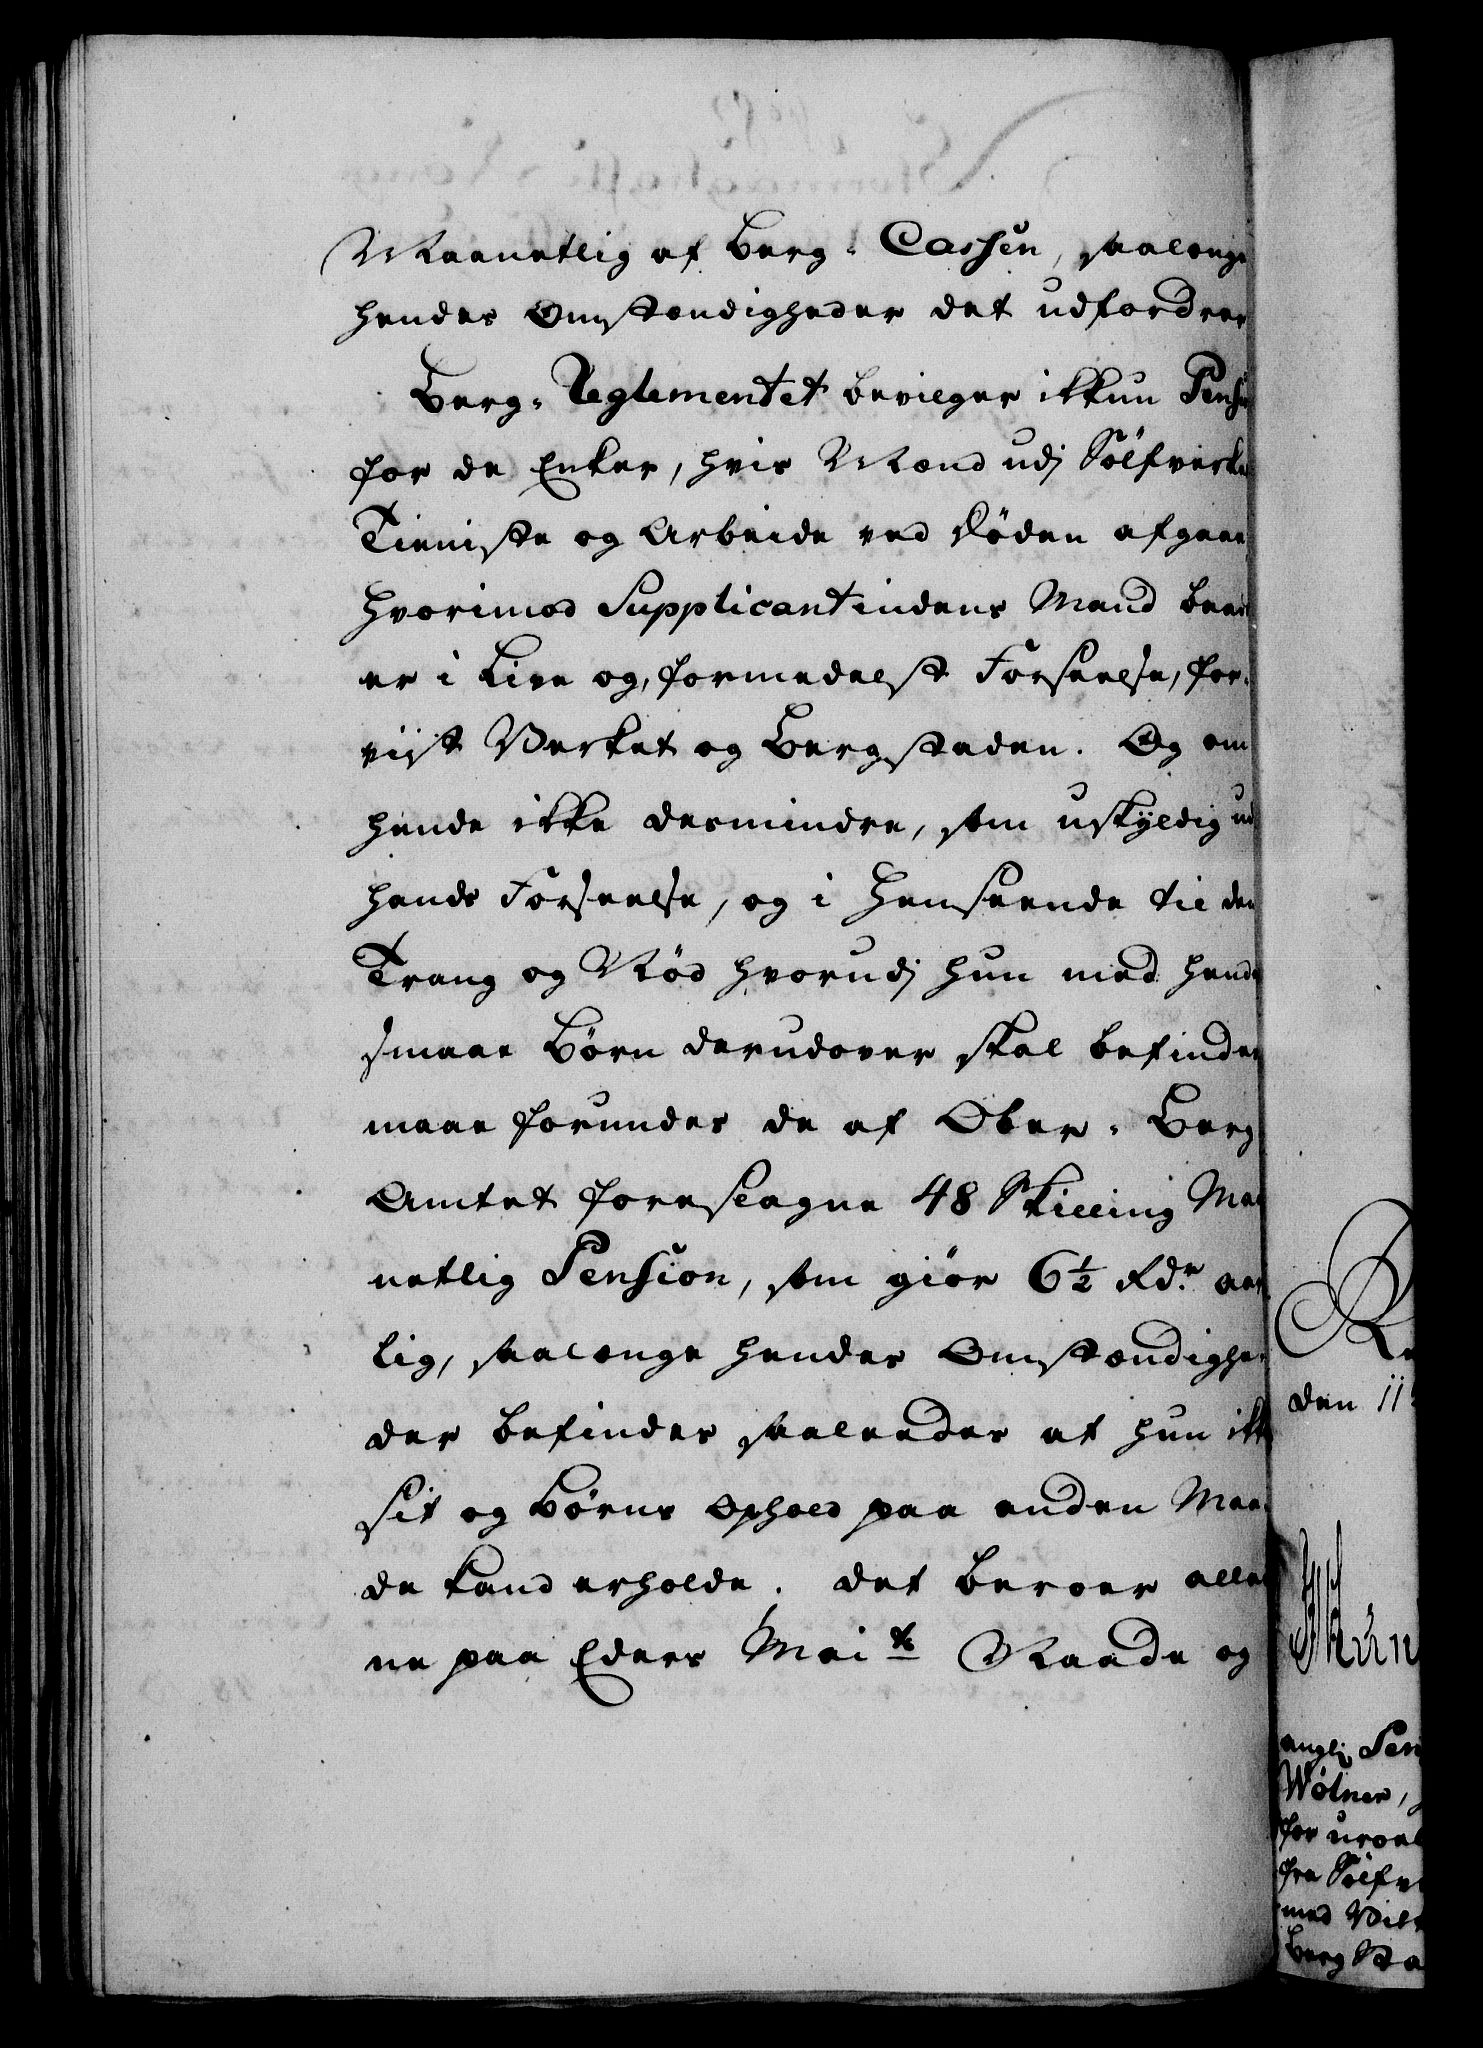 Maanetlig af Berg-Cassen, saalenge
hendes Omstændigheder det udfordrer
Berg-Reglementet bevilger ikkun Pensi
for de Enker, hvis Mænd udj Sölfverke
Tieniste og Arbeide ved Döden afgaae,
hvorimod Supplicantindens Mand
er i Live og, formedelst Forseelse, for-
viist Verket og Bergstaden. Og om
hende ikke desmindre, som uskyldig ud
hands Forseelse, og i Henseende til den
Trang og Nöd hvorudj hun med hende
smaae Börn derudover skal befindes
maae forundes de af Ober-Berg-
Amtet foreslagne 48 Skilling Maa
netlig Pension, som giör 6½ Rdr aar
lig, saalænge hendes Omstændighe-
der befindes saaledes at hun ikke
sit og Börns Ophold paa anden Maa-
de kand erholde. det beroer alle
ne paa Eders Maits Naade og
den 11
angl. Pen
Wölner,
for
fra Sölfv
med
Berg Ra